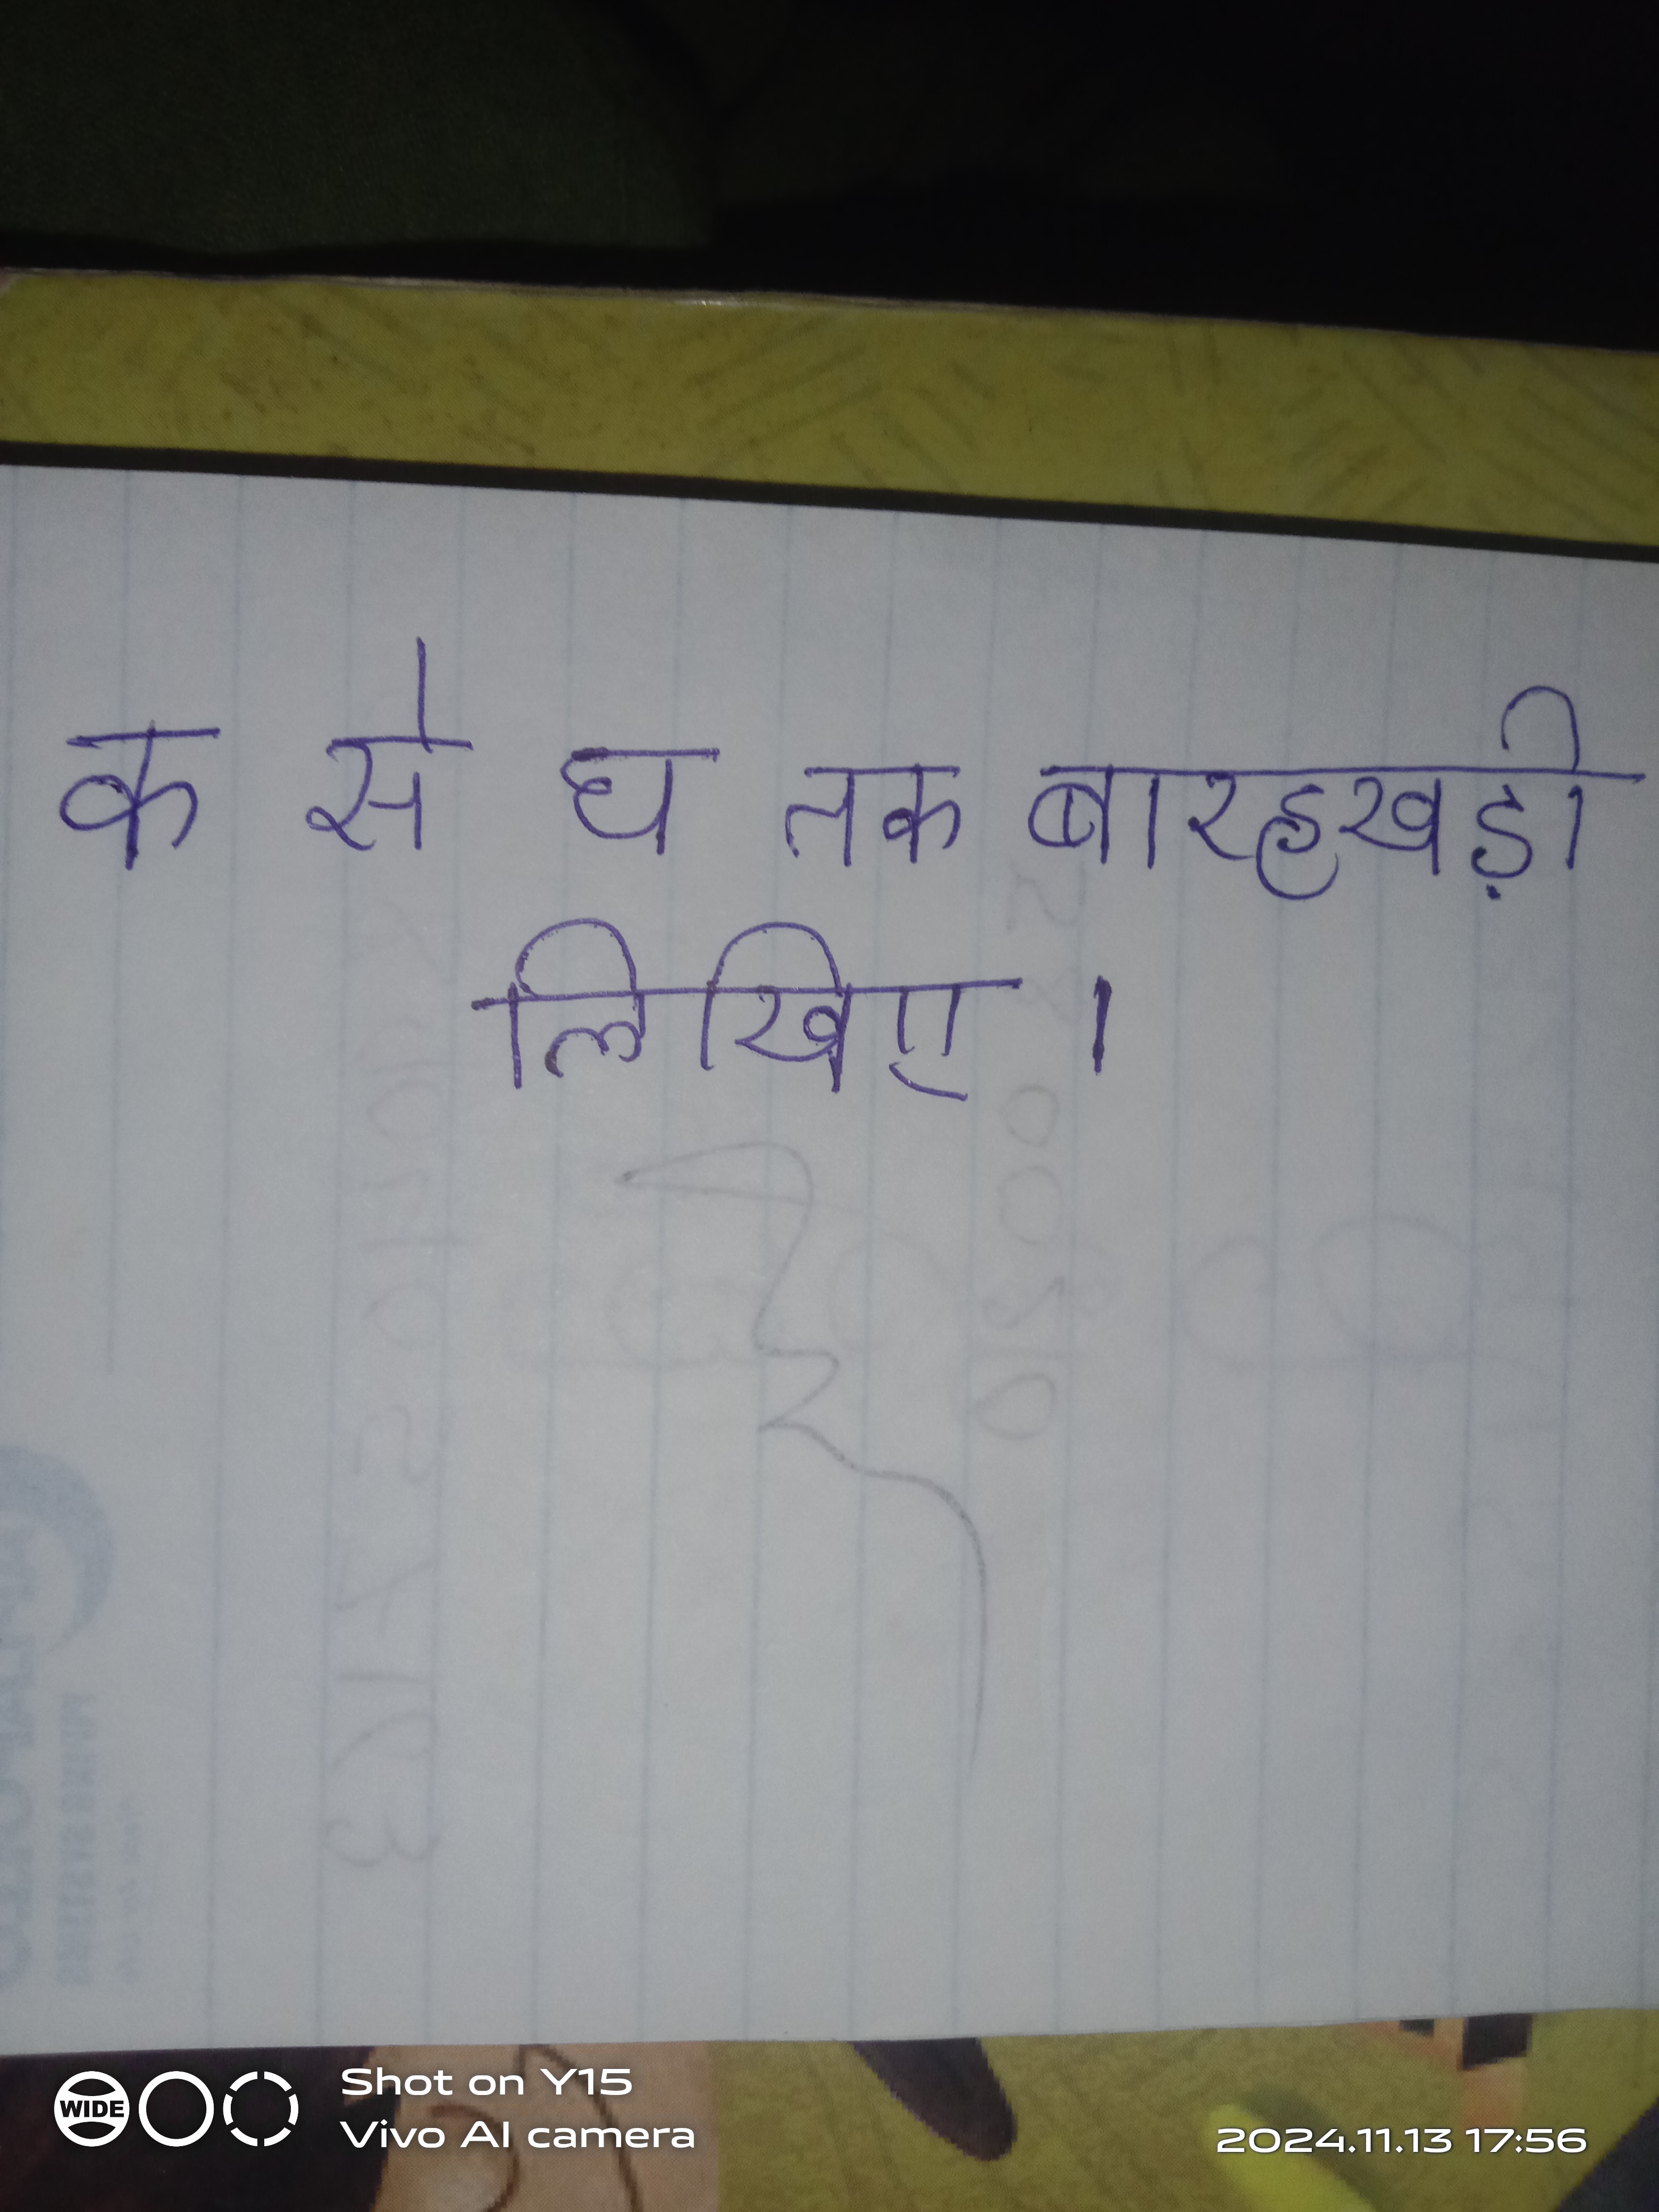 क से घ तक बारहखड़ी
लिखिए ।
WIDE
Shot on Y15
Vivo AI camera
2024.11.13 17:56